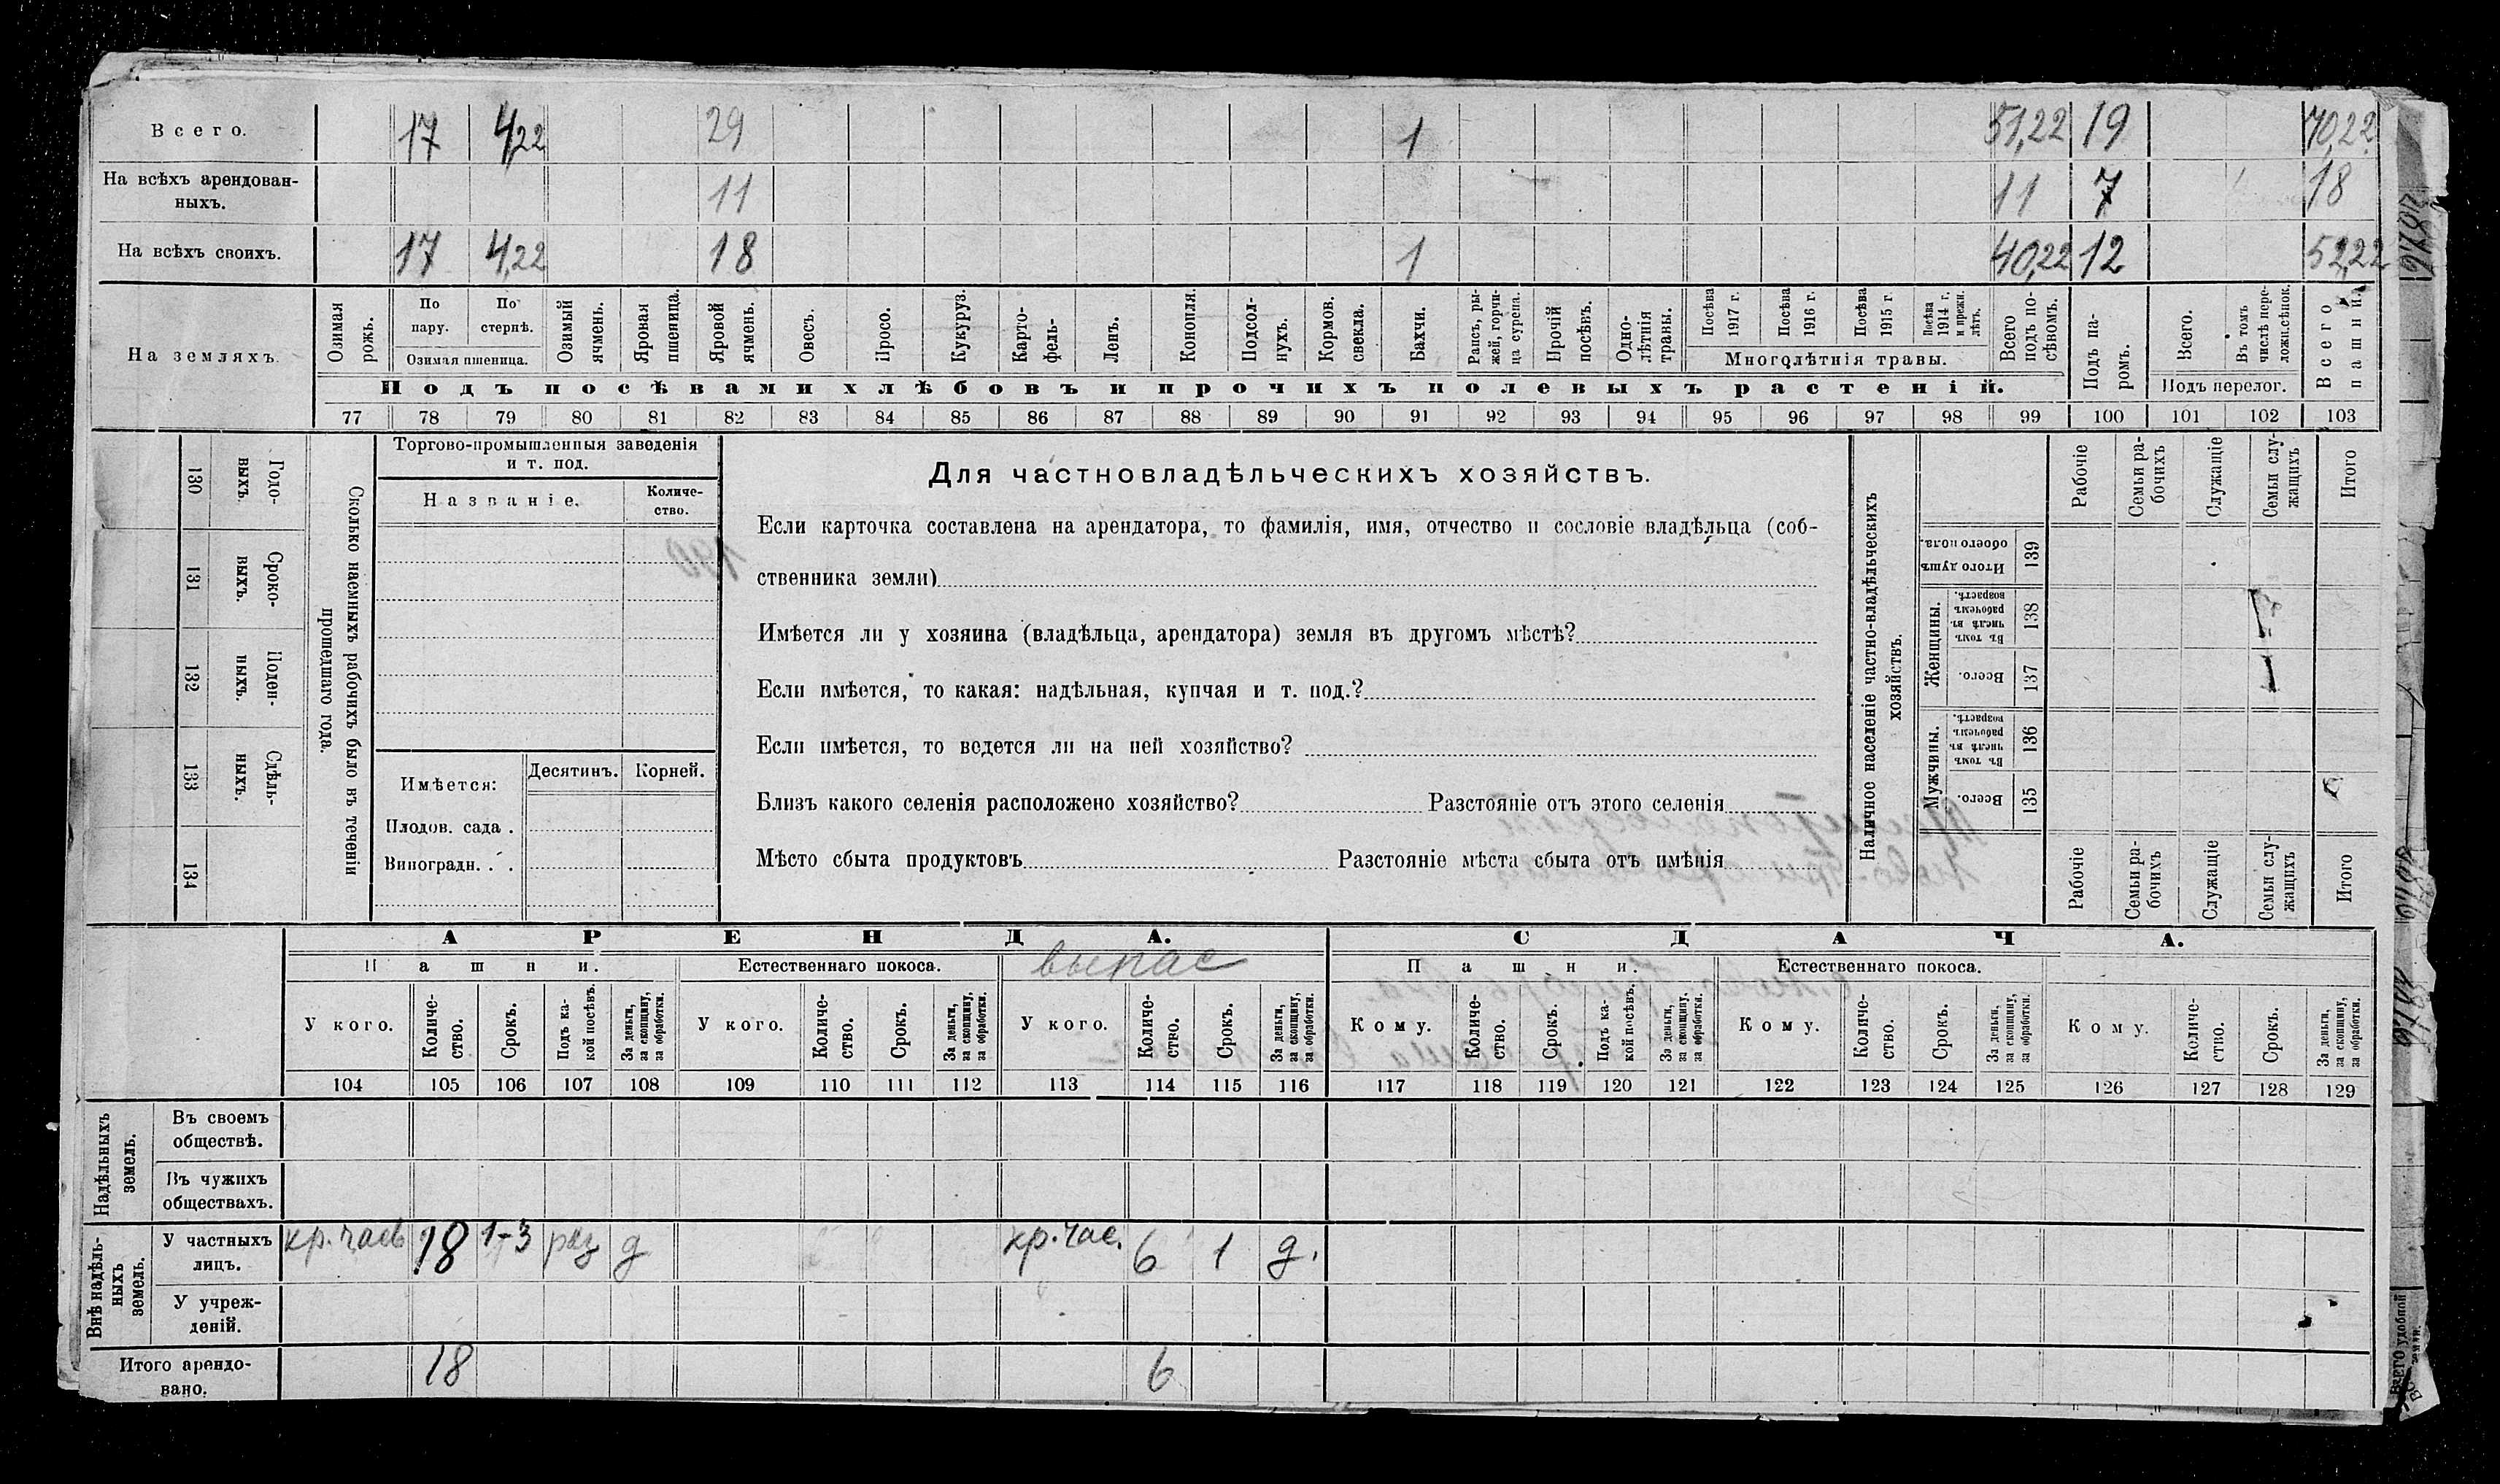 Всего. 17 4,22 29 1 51,22 19 70,22
На всѣхъ арендован-
ныхъ. 11 11 7 18
На всѣхъ своихъ. 17 4,22 18 1 40,22 12 52,22
На земляхъ.
Озимая рожь.
По пару.
По стернѣ.
Озимая пшеница.
Озимый ячмень.
Яровая пшеница.
Яровой ячмень.
Овесъ.
Просо.
Кукуруз.
Карто-
фель-
Ленъ.
Конопля.
Подсол-
нухъ.
Кормов. свекла.
Бахчи.
Рапсъ, ры-
жей, горчи-
ца сурепа.
Прочій посѣвъ.
Одно-
лѣтнія травы.
Посѣва 1917 г.
Посѣва 1916 г.
Посѣва 1915 г.
Посѣва 1914 г. и прежн. лѣтъ.
Многолѣтнія травы.
Всего подъ по-
сѣвомъ.
Подъ посѣвами хлѣбовъ и прочихъ полевыхъ растеній.
Подъ па-
ромъ.
Всего.
Въ томъ числѣ пере-
лож. сѣнок.
Подъ перелог.
Всего пашни.
77 78 79 80 81 82 83 84 85 86 87 88 89 90 91 92 93 94 95 96 97 98 99 100 101 102 103
130 Годо-
выхъ.
131 Сроко-
выхъ.
132 Поден-
ныхъ.
133 Сдѣль-
ныхъ.
134
Сколько наемныхъ рабочихъ было въ теченіи
прошедшаго года.
Торгово-промышленныя заведенія
и т. под.
Названіе.
Количе-
ство.
Имѣется:
Десятинъ. Корней.
Плодов. сада .
Виноградн. . .
Для частновладѣльческихъ хозяйствъ.
Если карточка составлена на арендатора, то фамилія, имя, отчество и сословіе владѣльца (соб-
ственника земли)
Имѣется ли у хозяина (владѣльца, арендатора) земля въ другомъ мѣстѣ?
Если имѣется, то какая: надѣльная, купчая и т. под.?
Если имѣется, то ведется ли на ней хозяйство?
Близъ какого селенія расположено хозяйство? Разстояніе отъ этого селенія
Мѣсто сбыта продуктовъ Разстояніе мѣста сбыта отъ имѣнія
Наличное населеніе частно-владѣльческихъ
хозяйствъ.
Рабочіе
Семьи ра-
бочихъ
Служащіе
Семьи слу-
жащихъ
Итого
Итого душъ обоего пола. 139
Женщины.
Въ томъ числѣ въ рабочемъ возрастѣ. 138
Всего. 137
Мужчины.
Въ томъ числѣ въ рабочемъ возрастѣ. 136
Всего. 135
Рабочіе
Семьи ра-
бочихъ
Служащіе
Семьи слу-
жащихъ
Итого
АРЕНДА. СДАЧА.
Пашни. Естественнаго покоса. выпас Пашни. Естественнаго покоса.
У кого.
Количе-
ство.
Срокъ.
Подъ ка-
кой посѣвъ.
За деньги, за скопщину, за обработки.
У кого.
Количе-
ство.
Срокъ.
За деньги, за скопщину, за обработки.
У кого.
Количе-
ство.
Срокъ.
За деньги, за скопщину, за обработки.
Кому.
Количе-
ство.
Срокъ.
Подъ ка-
кой посѣвъ.
За деньги, за скопщину, за обработки.
Кому.
Количе-
ство.
Срокъ.
За деньги, за скопщину, за обработки.
Кому.
Количе-
ство.
Срокъ.
За деньги, за скопщину, за обработки.
104 105 106 107 108 109 110 111 112 113 114 115 116 117 118 119 120 121 122 123 124 125 126 127 128 129
Надѣльныхъ земель.
Въ своемъ
обществѣ.
Въ чужихъ
обществахъ.
Внѣ надѣль-
ныхъ земель.
У частныхъ
лицъ. кр. час 18 1-3 раз д кр. час. 6 1 д.
У учреж-
деній.
Итого арендо-
вано. 18 6
Всего удобной земли.